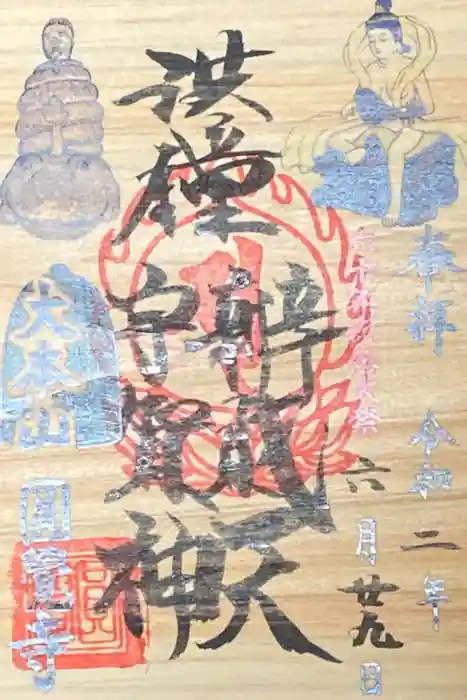 奉拝
令和二年
六月廿九日
洪鐘
辨財天
宇賀神
大本山
圓覺寺